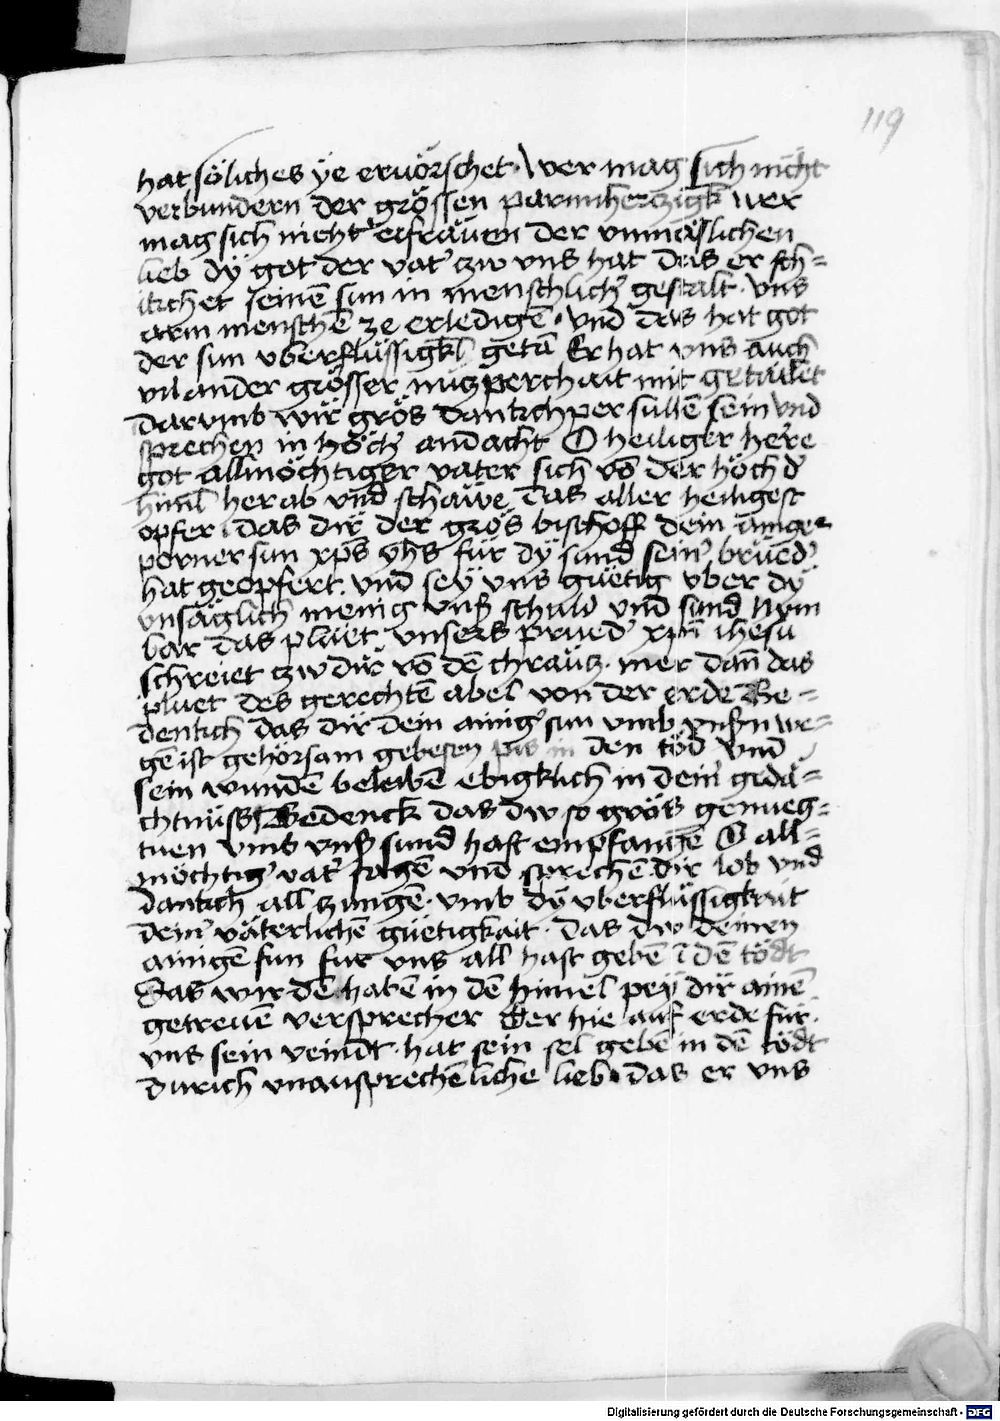 119
hat söliches ÿe eruörschet · Wer mag sich nicht
verbundern der grössen parmherczigk wer
mag sich nicht erfräuen der vnmäslichen
lieb dÿ got der vat' zw vns hat das er sch=
itchet seinē sun in menschlich' gestalt · Vns
arm menschē ze erledigē · Vnd das hat got
der sun vberflüssigkl getā Er hat vns auch
vil ander grösser nuczperchait mit getailet
darumb wir grös danckchper sullē sein vnd
sprechen in höch' andacht O heiliger herre
got allmöchtiger vater sich vō der höch d'
himl herab vnd schawe das aller heiligest
opfer das dir der grös bischoff dein ainge=
porner sun xp̄s yh̄s für dÿ sund sein' brüed'
hat geopfert. vnd seÿ vns güetig vber dÿ
vnsäglich menig vnß schuld vnd sund Nym
bar das pluet vnsers prued' xp̄ī ihesu
schreiet zw dir vō dē chräucz · mer dan̄ das
pluet des gerechtē abel von der erde Be=
denckch das dir dein ainig' sun vmb vnßn we=
gē ist gehörsam gebesen pis in den töd vnd
sein wundē beleibē ebigklich in dein' gedä=
chtnüss Bedenck das dw so grös genueg=
tuen vmb vnß sund hast empfangē O all=
möchtig' vat' sagē vnd sprechē dir lob vnd
danckch all zungē · vmb dÿ vberflüssigkait
dein' väterlichē güetigkait · das dw deinen
ainigē sun fur vns all hast gebē ī dē tödt
das wir dē habē in dē himel peÿ dir ainē
getreuē versprecher Der hie auf erde für
vns sein veindt · hat sein sel gebē in dē tödt
durich vnausprechēliche lieb · das er vns
Digitalisierung gefördert durch die Deutsche Forschungsgemeinschaft - DFG